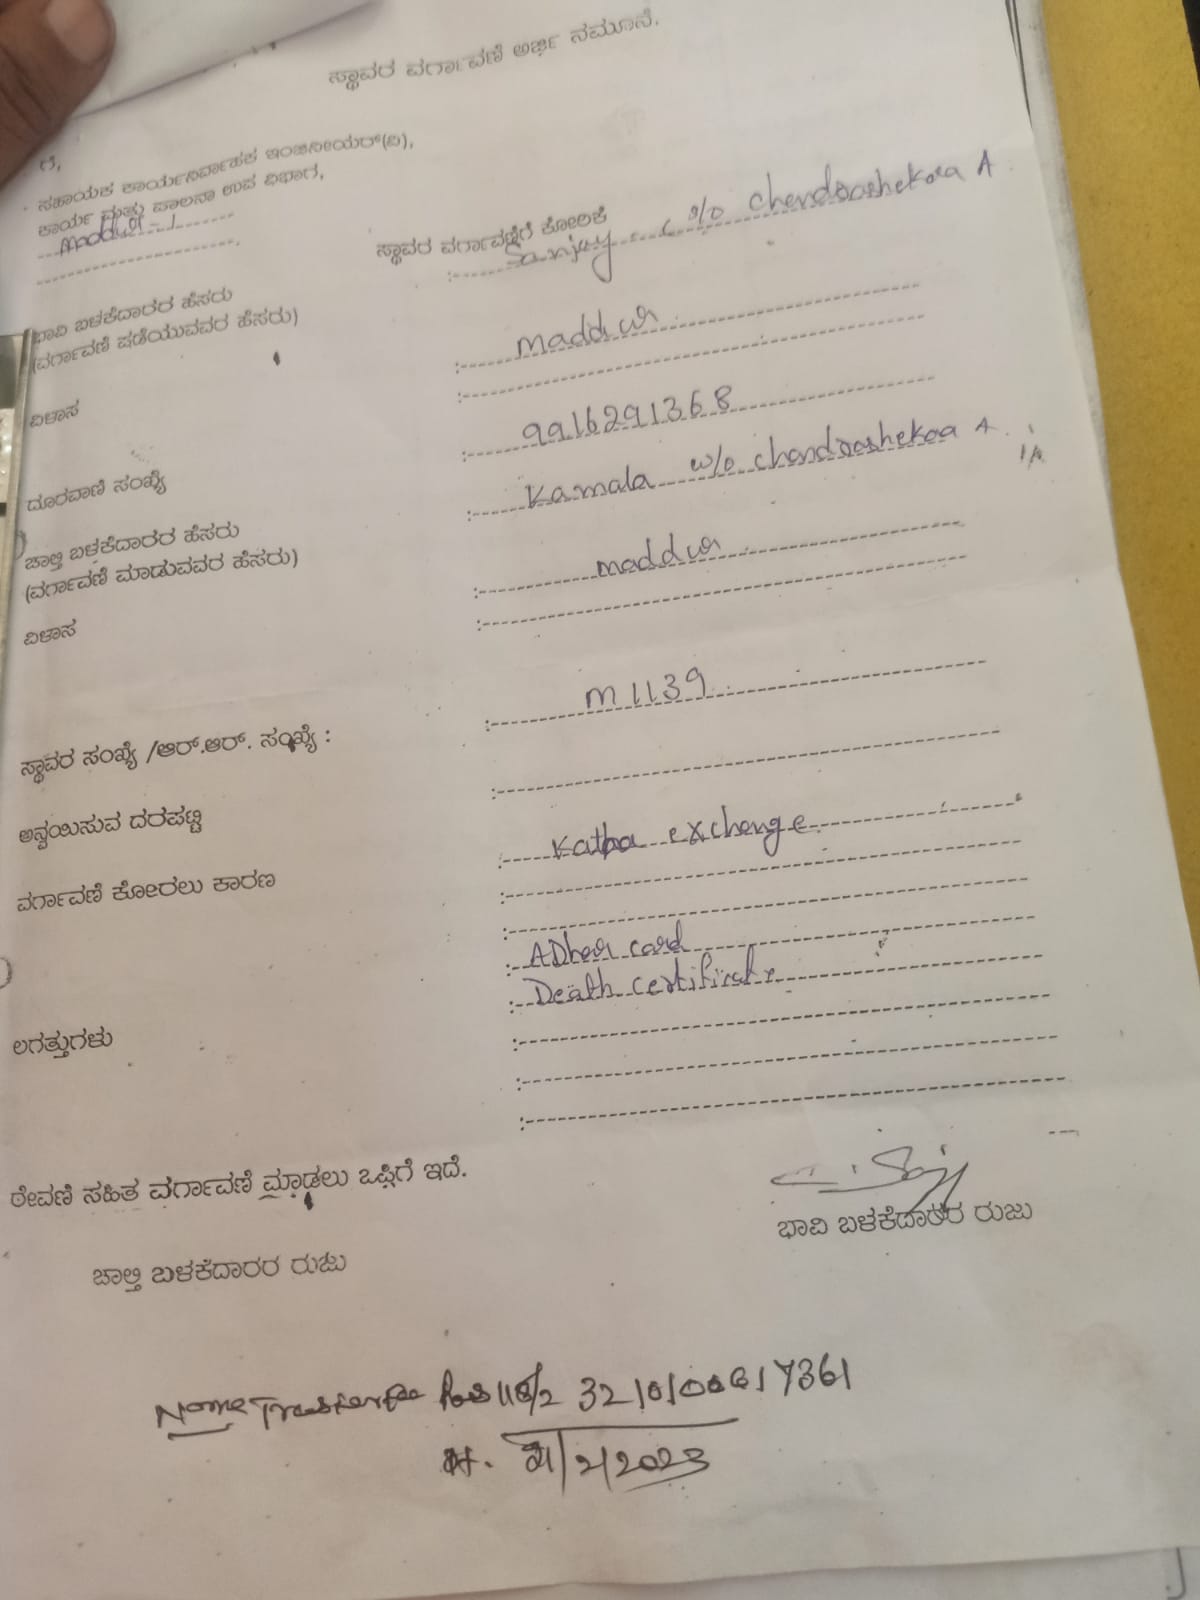 ಸ್ಥಾವರ ವರ್ಗಾವಣೆ ಅರ್ಜಿ ನಮೂನೆ.
ಗೆ,
ಸಹಾಯಕ ಕಾರ್ಯನಿರ್ವಾಹಕ ಇಂಜಿನೀಯರ್(ವಿ),
ಕಾರ್ಯ ಮತ್ತು ಪಾಲನಾ ಉಪ ವಿಭಾಗ,
ಸ್ಥಾವರ ವರ್ಗಾವಣೆಗೆ ಕೋರಿಕೆ
ಭಾವಿ ಬಳಕೆದಾರರ ಹೆಸರು : Sanjay . C %o chandrashekara A
(ವರ್ಗಾವಣೆ ಪಡೆಯುವವರ ಹೆಸರು)
ವಿಳಾಸ : maddur
ದೂರವಾಣಿ ಸಂಖ್ಯೆ : 9916291368
ಚಾಲ್ತಿ ಬಳಕೆದಾರರ ಹೆಸರು : Kamala w/o chandrashekara A
(ವರ್ಗಾವಣೆ ಮಾಡುವವರ ಹೆಸರು)
ವಿಳಾಸ : maddur
ಸ್ಥಾವರ ಸಂಖ್ಯೆ /ಆರ್.ಆರ್. ಸಂಖ್ಯೆ : : M 1139
ಅನ್ವಯಿಸುವ ದರಪಟ್ಟಿ :
ವರ್ಗಾವಣೆ ಕೋರಲು ಕಾರಣ : Katha exchenge
ಲಗತ್ತುಗಳು : ADher card
: Death certificate
ಠೇವಣಿ ಸಹಿತ ವರ್ಗಾವಣೆ ಮಾಡಲು ಒಪ್ಪಿಗೆ ಇದೆ.
ಚಾಲ್ತಿ ಬಳಕೆದಾರರ ರುಜು
ಭಾವಿ ಬಳಕೆದಾರರ ರುಜು
Name